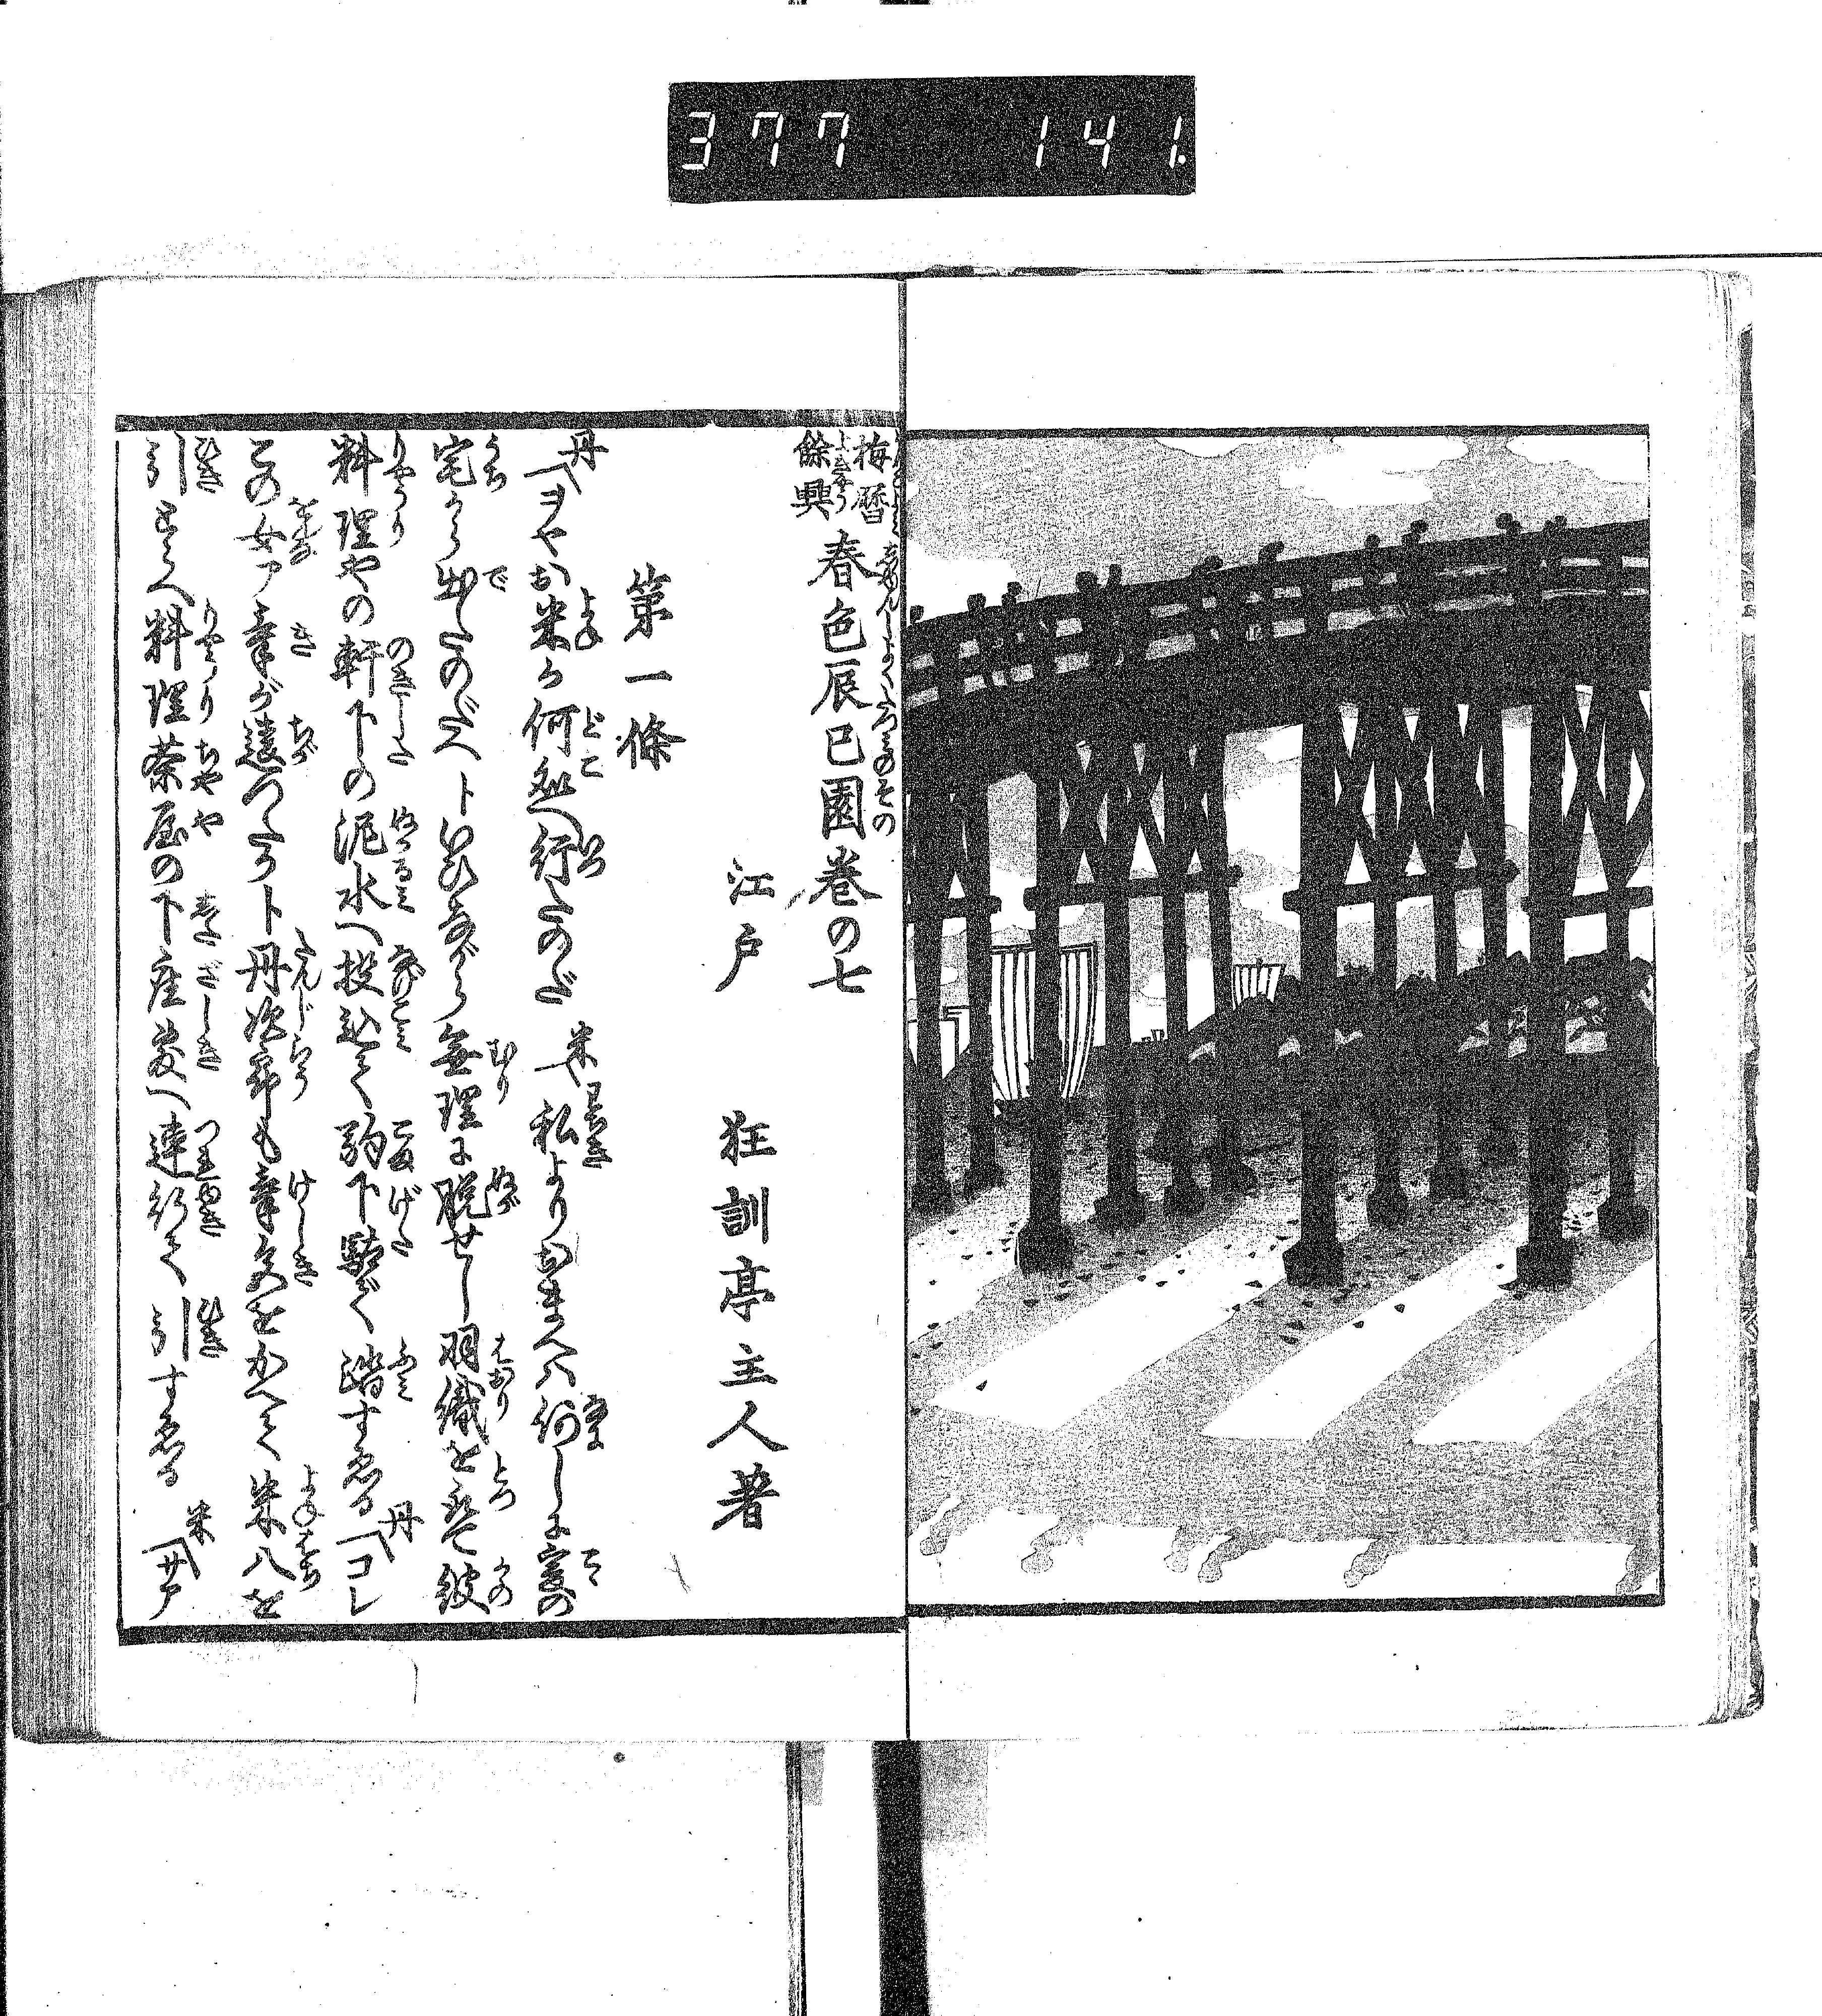 377 141.
梅暦
餘興
春色辰巳園巻の七
江戸 狂訓亭主人著
第一條
丹「ヲやお米か何処へ行たのだ 米「私よりおまへハ何しに爰の
宅から出たのだへトいひながら無理に脱せし羽織を取て彼
料理やの軒下の泥水へ投込で駒下駄で踏すゑる 丹「コレ
この女ア章が違つたかト丹次郎も氣色をかへて米八を
引とらへ料理茶屋の下座敷へ連行て引すゑる 米「サア